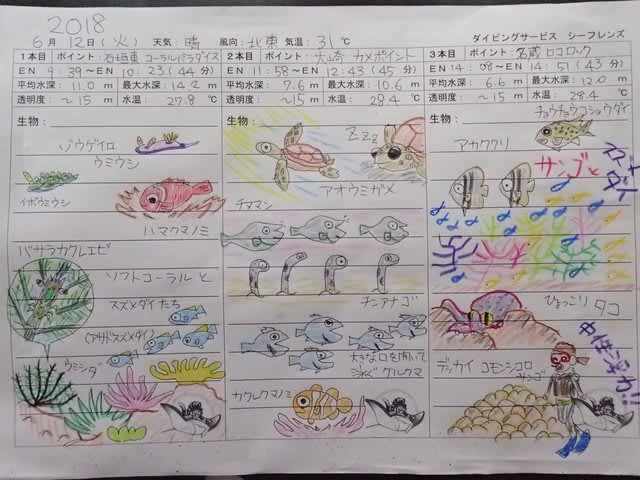 2018
6月 12日(火) 天気: 晴 風向: 北東 気温: 31℃ ダイビングサービス シーフレンズ
1本目 ポイント: 石垣東 コーラルパラダイス
EN 9:39~EN 10:23(44分)
平均水深: 11.0m 最大水深: 14.2m
透明度: ~15m 水温: 27.8℃
生物:
ゾウゲイロ
ウミウシ
イボウミウシ
ハマクマノミ
バサラカクレエビ
ソフトコーラルと
スズメダイたち
(アサドスズメダイ)
ウミシダ
2本目 ポイント: 大崎 カメポイント
EN 11:58~EN 12:43(45分)
平均水深: 7.6m 最大水深: 10.6m
透明度: ~15m 水温: 28.4℃
生物:
ZZz
アオウミガメ
チンアナゴ
大きな口を開いて
泳ぐグルクマ
カクレクマノミ
3本目 ポイント: 名蔵 ロロロック
EN 14:08~EN 14:51(43分)
平均水深: 6.6m 最大水深: 12.0m
透明度: ~15m 水温: 28.4℃
チョウチョウコショウダイ
生物:
アカククリ
サンゴと
ひょっこり タコ
中性浮力!!
デッカイ コモンシコロ
サンゴ